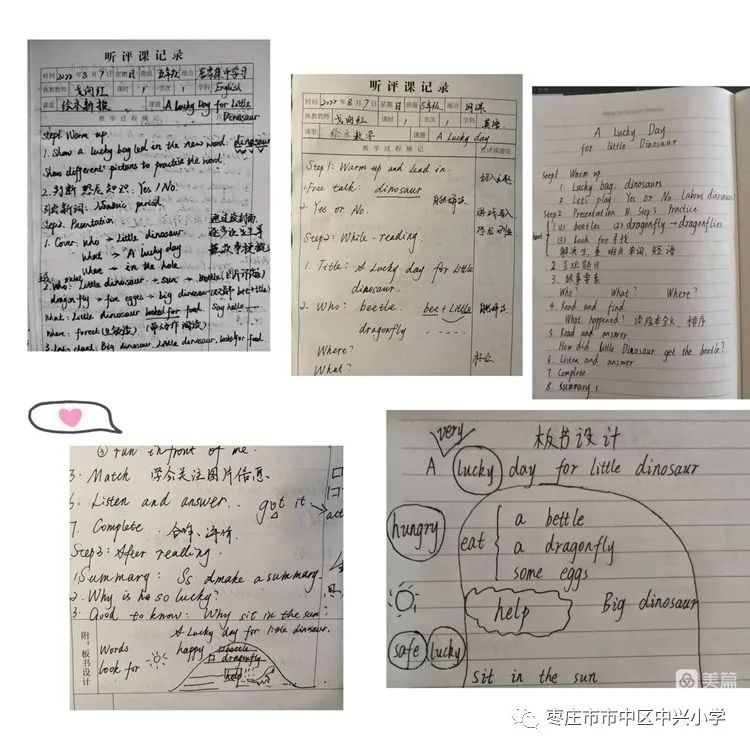 听评课记录
时间 2022年8月7日 星期日 班级 五年级 地点 居家集中学习
执教教师 戈向红 课时 1 节次 1 学科 English
课型 绘本新授 课题 A Lucky Day for Little Dinosaur
教学过程摘记
Step1 Warm up
1. Show a lucky bag led in the new word. dinosaur
Show different pictures to practise the word.
2. 判断恐龙知识: Yes / No.
period.
Step2. Presentation
1. Cover: who → Little dinosaur.
what → A lucky day
where → in the hole
2. Who: Little dinosaur → sun → beetle
dragonfly → five eggs → big dinosaur
What: Little dinosaur looked for food. Say hello
Where: forest
Big dinosaur. Little dinosaur. looked for food.
听评课记录
时间 2022年8月7日 星期日 班级 5年级 地点 网课
执教教师 戈向红 课时 1 节次 1 学科 英语
课型 绘本教学 课题 A Lucky day
教学过程摘记 点评或建议
Step1: Warm up and lead in.
1. Free talk: dinosaur
2. Yes or No.
Step2: While-reading.
1. Title: A Lucky day for Little
dinosaur.
2. Who: beetle. bee+Little
dragonfly
Where?
What?
A Lucky Day
for little Dinosaur
Step1 Warm up
1. Lucky bag: dinosaurs
2. Let's play: Yes or No (about dinosaurs)
Step2 Presentation & Step3 Practice
1. (1) beetles (2) dragonfly → dragonflies
(3) look for 寻找
解决生、重难点单词、短语
2. 呈现题目
3. 故事要素
Who? What? Where?
4. Read and find
What happened? 读绘本全文、排序
5. Read and answer.
How did little Dinosaur get the beetle?
6. Listen and answer
7. Complete
8. Summary
② run in front of me.
5. Match 学会关注图片信息.
6. Listen and answer.. got it.
7. Complete
Step3: After reading.
1. Summary: Ss dmake a summary.
2. Why is he so lucky?
3. Good to know: Why sit in the sun?
附:板书设计
A Lucky day for little dinosaur.
Words happy beetle
look for dragonfly
help
板书设计
very
A lucky day for little dinosaur
hungry
eat a bettle
a dragonfly
some eggs
help Big dinosaur
safe lucky
sit in the sun
美篇
枣庄市市中区中兴小学